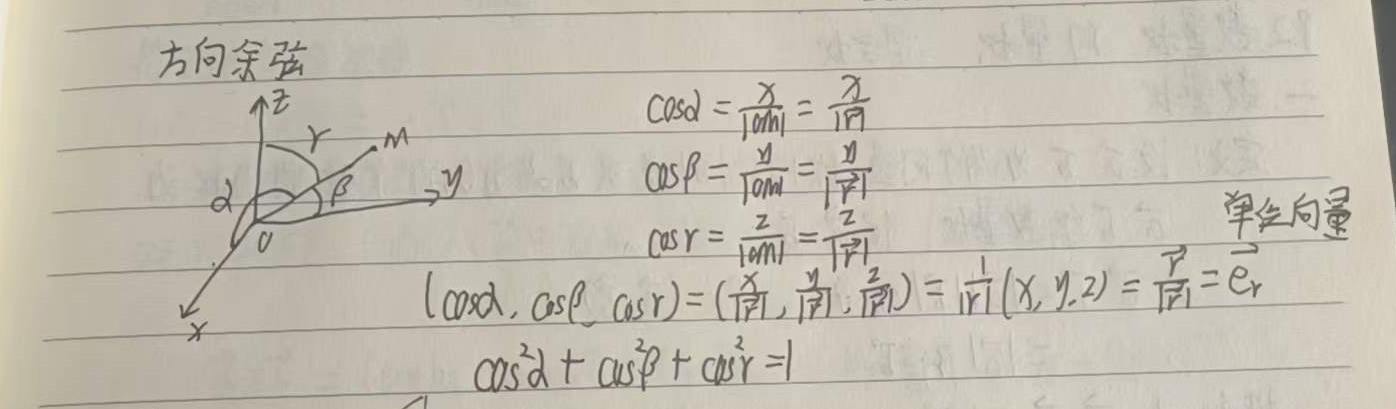 方向余弦
z
γ
M
α
β
y
O
x
cosα = x/|OM| = x/|r⃗|
cosβ = y/|OM| = y/|r⃗|
cosγ = z/|OM| = z/|r⃗|
单位向量
(cosα, cosβ, cosγ) = (x/|r⃗|, y/|r⃗|, z/|r⃗|) = 1/|r⃗| (x, y, z) = r⃗/|r⃗| = e⃗ᵣ
cos²α + cos²β + cos²γ = 1